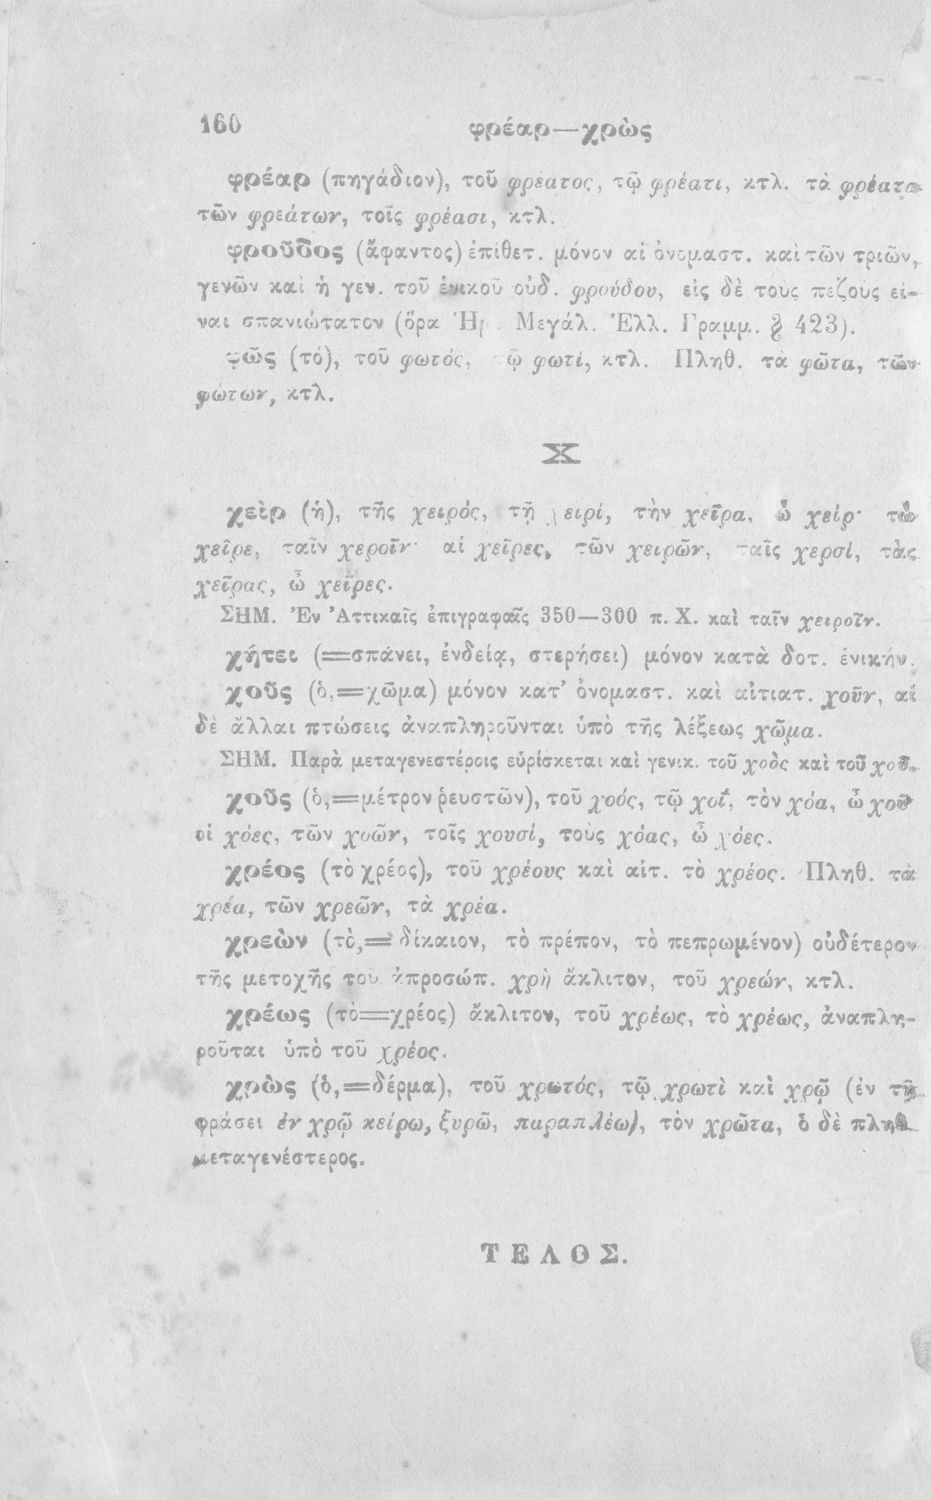 160 φρέαρ—χρὼς
φρέαρ (πηγάδιον), τοῦ φρέατος, τῷ φρέατι, κτλ. τὰ φρέατα
τῶν φρεάτων, τοῖς φρέασι, κτλ.
φροῦδος (ἄφαντος) ἐπίθετ. μόνον αἱ ὀνομαστ. καὶ τῶν τριῶν,
γενῶν καὶ ἡ γεν. τοῦ ἑνικοῦ οὐδ. φρούδου, εἰς δὲ τοὺς πεζοὺς εἶ-
ναι σπανιώτατον (ὅρα Μεγάλ. Ἑλλ. Γραμμ. § 423).
φῶς (τό), τοῦ φωτός, φωτί, κτλ. Πληθ. τὰ φῶτα, τῶν
φώτων, κτλ.
Χ
χεὶρ (ἡ), τῆς χειρός, τῇ χειρί, τὴν χεῖρα, ὦ χείρ· τὼ
χεῖρε, ταῖν χεροῖν· αἱ χεῖρες, τῶν χειρῶν, ταῖς χερσί, τὰς
χεῖρας, ὦ χεῖρες.
ΣΗΜ. Ἐν Ἀττικαῖς ἐπιγραφαῖς 350—300 π. Χ. καὶ ταῖν χειροῖν.
χήτει (=σπάνει, ἐνδείᾳ, στερήσει) μόνον κατὰ δοτ. ἑνικήν.
χοῦς (ὁ,=χῶμα) μόνον κατ’ ὀνομαστ. καὶ αἰτιατ. χοῦν, αἱ
δὲ ἄλλαι πτώσεις ἀναπληροῦνται ὑπὸ τῆς λέξεως χῶμα.
ΣΗΜ. Παρὰ μεταγενεστέροις εὑρίσκεται καὶ γενικ. τοῦ χοὸς καὶ τοῦ χοῦ.
χοῦς (ὁ,=μέτρον ῥευστῶν), τοῦ χοός, τῷ χοΐ, τὸν χόα, ὦ χοῦ
οἱ χόες, τῶν χοῶν, τοῖς χουσί, τοὺς χόας, ὦ χόες.
χρέος (τὸ χρέος), τοῦ χρέους καὶ αἰτ. τὸ χρέος. Πληθ. τὰ
χρέα, τῶν χρεῶν, τὰ χρέα.
χρεὼν (τὸ,= δίκαιον, τὸ πρέπον, τὸ πεπρωμένον) οὐδέτερον
τῆς μετοχῆς τοῦ ἀπροσώπ. χρὴ ἄκλιτον, τοῦ χρεών, κτλ.
χρέως (τὸ=χρέος) ἄκλιτον, τοῦ χρέως, τὸ χρέως, ἀναπλη-
ροῦται ὑπὸ τοῦ χρέος.
χρὼς (ὁ,=δέρμα), τοῦ χρωτός, τῷ χρωτὶ καὶ χρῷ (ἐν τῇ
φράσει ἐν χρῷ κείρω, ξυρῶ, παραπλέω), τὸν χρῶτα, ὁ δὲ πληθ.
μεταγενέστερος.
ΤΕΛΟΣ.